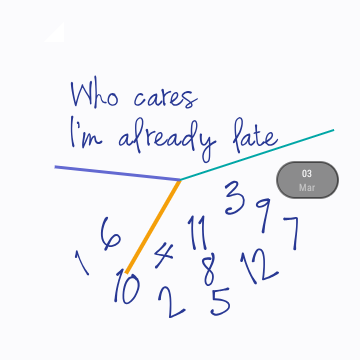 Who cares
I'm already late
03
Mar
3
9
7
6
11
1
4
8
12
10
2
5